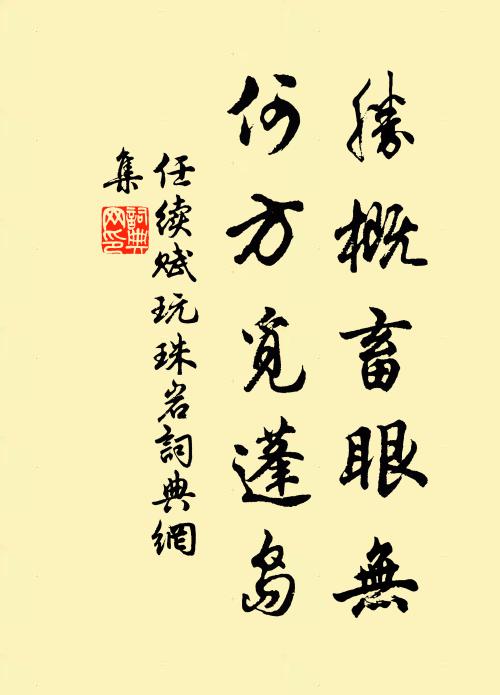 勝概畜眼無
何方覓蓬島
任续赋玩珠岩詞典網
集
詞典
网印